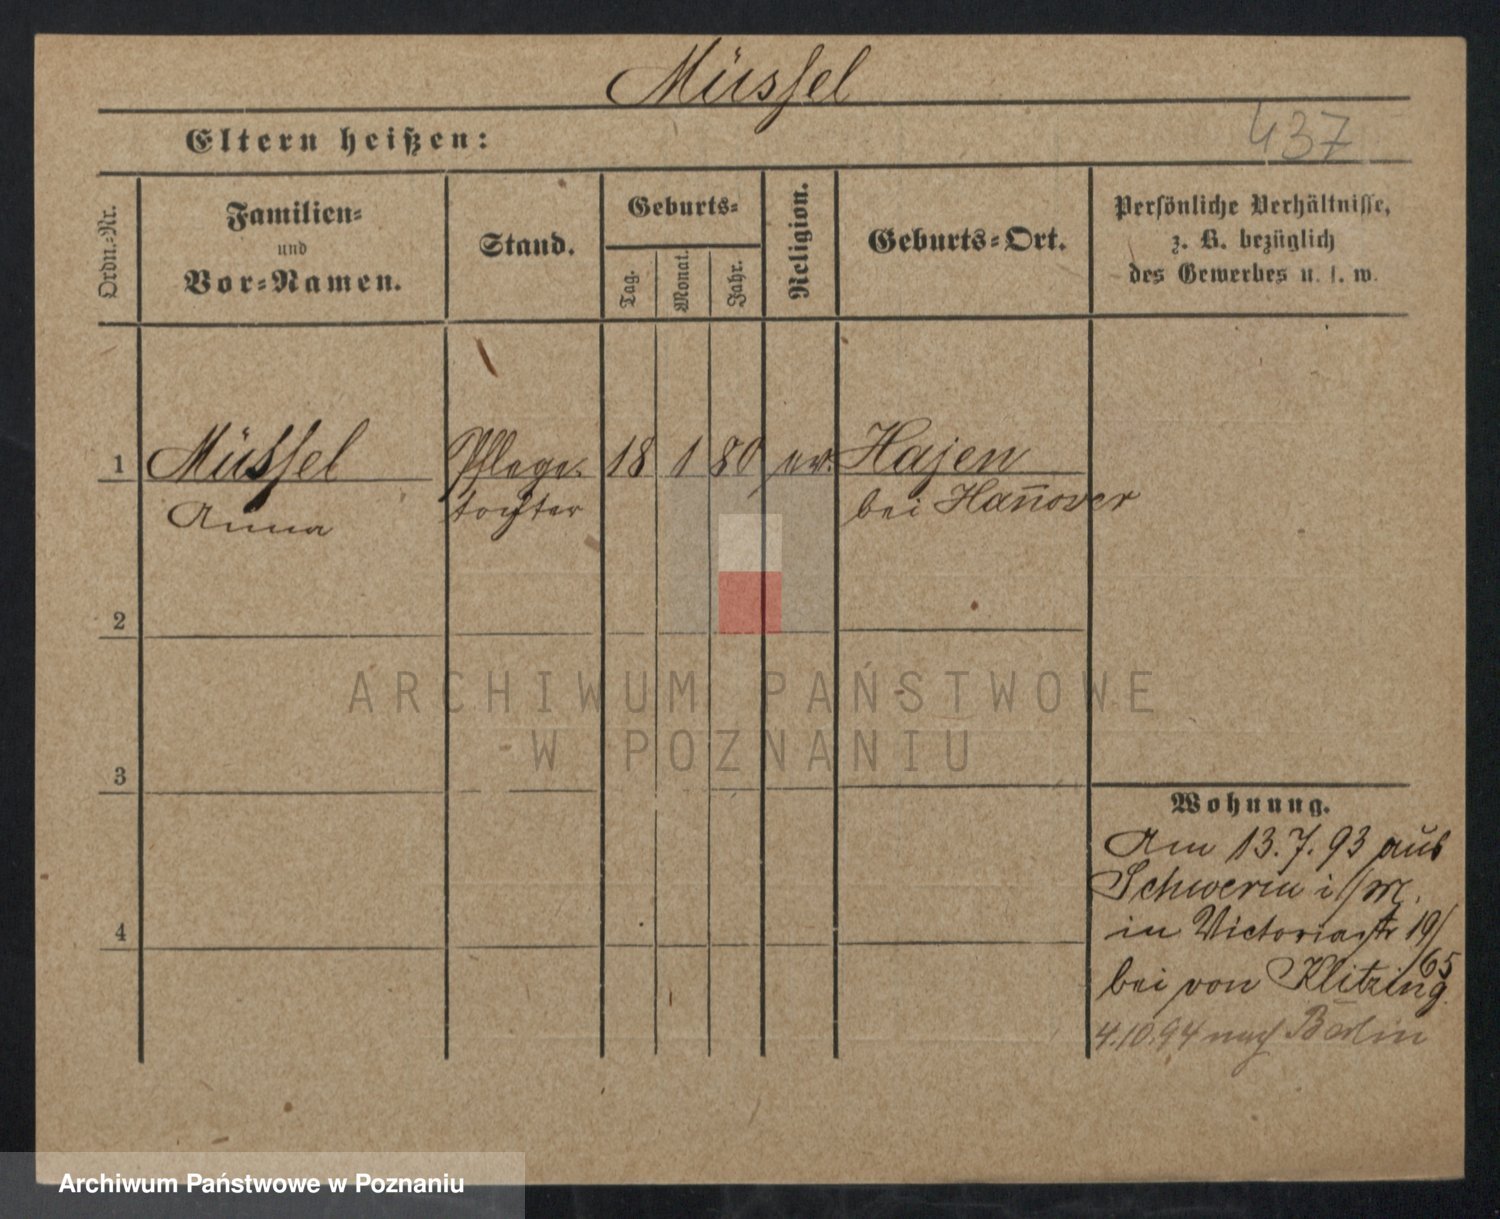 Müssel
Eltern heißen:
437
Ordn.-Nr.
Familien-
und
Vor-Namen.
Stand.
Geburts-
Tag.
Monat.
Jahr.
Religion.
Geburts-Ort.
Persönliche Verhältnisse,
z. B. bezüglich
des Gewerbes u. s. w.
1 Müssel Pflege- 18 1 80 ev. Hajen
Anna tochter bei Han̄over
2
3
4
Wohnung.
Am 13.7.93 aus
Schwerin i/M.
in Victoriastr 19/
65
bei von Klitzing
4.10.94 nach Berlin
ARCHIWUM PAŃSTWOWE
W POZNANIU
Archiwum Państwowe w Poznaniu